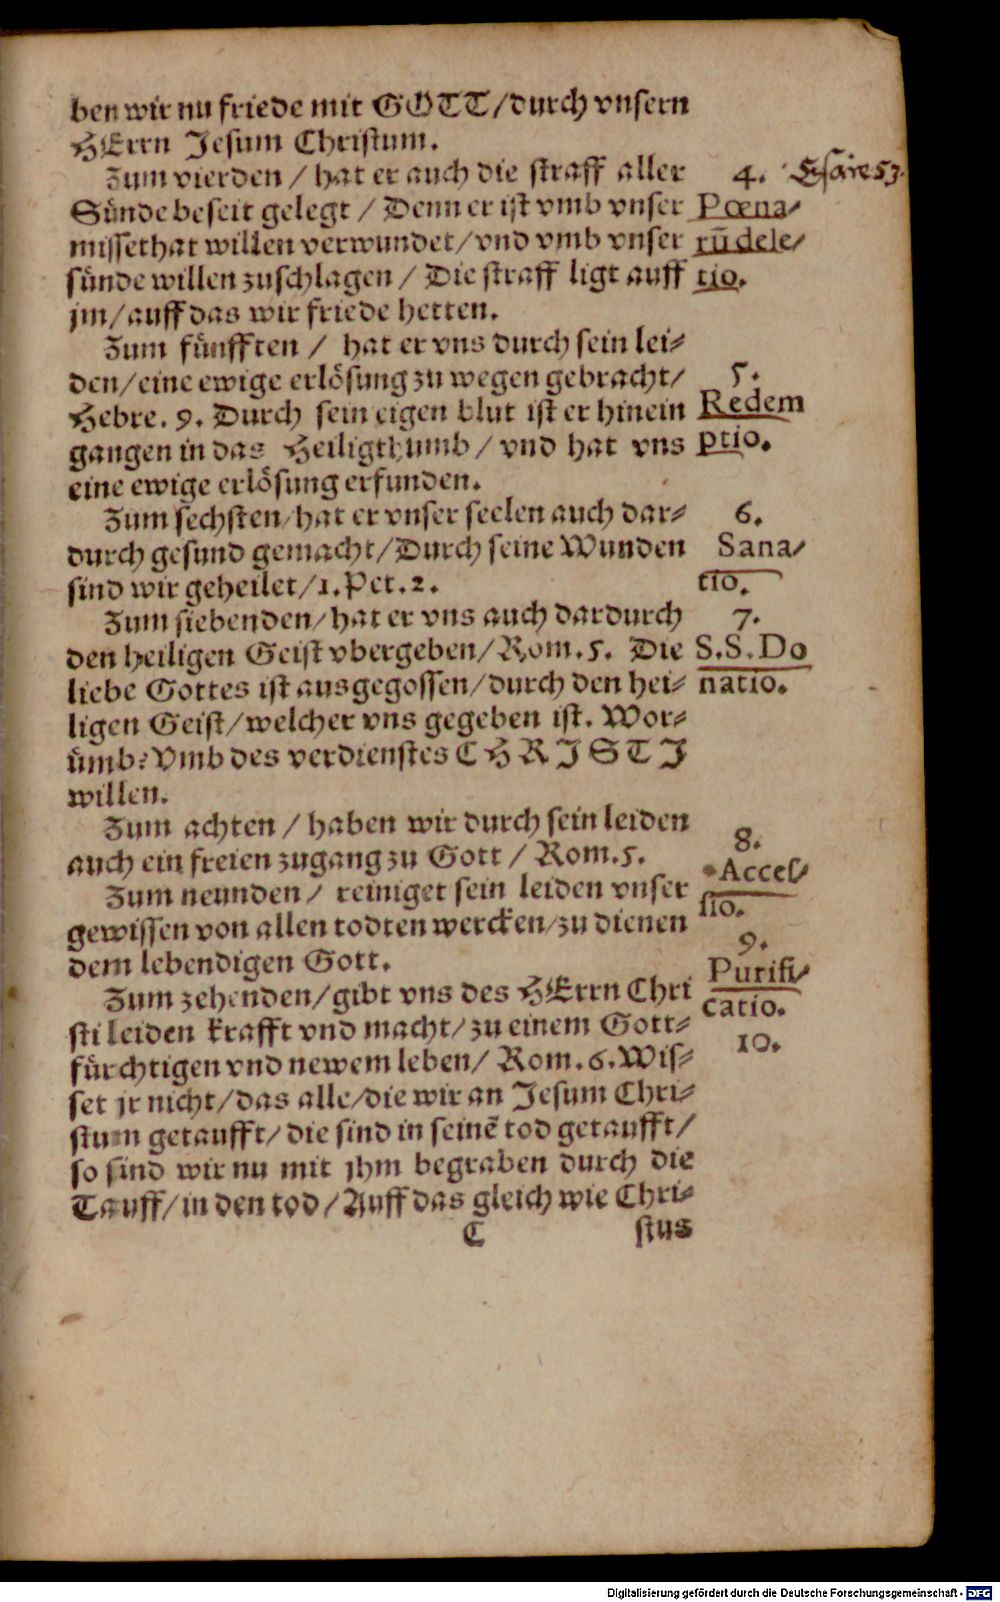 ben wir nu friede mit GOTT/durch vnsern
HErrn Jesum Christum.
Zum vierden / hat er auch die straff aller
Sünde beseit gelegt / Denn er ist vmb vnser
missethat willen verwundet/vnd vmb vnser
sünde willen zuschlagen / Die straff ligt auff
jm/auff das wir friede hetten.
Zum fünfften / hat er vns durch sein lei⸗
den/eine ewige erlösung zu wegen gebracht/
Hebre. 9. Durch sein eigen blut ist er hinein
gangen in das Heiligthumb / vnd hat vns
eine ewige erlösung erfunden.
Zum sechsten/hat er vnser seelen auch dar⸗
durch gesund gemacht/Durch seine Wunden
sind wir geheilet/1.Pet.2.
Zum siebenden/hat er vns auch dardurch
den heiligen Geist vbergeben/Rom.5. Die
liebe Gottes ist ausgegossen/durch den hei⸗
ligen Geist/welcher vns gegeben ist. Wor⸗
ümb? Vmb des verdienstes CHRISTI
willen.
Zum achten / haben wir durch sein leiden
auch ein freien zugang zu Gott / Rom.5.
Zum neunden / reiniget sein leiden vnser
gewissen von allen todten wercken/zu dienen
dem lebendigen Gott.
Zum zehenden/gibt vns des HErrn Chri
sti leiden krafft vnd macht/zu einem Gott⸗
fürchtigen vnd newem leben/ Rom.6.Wis⸗
set jr nicht/das alle/die wir an Jesum Chri⸗
stum getaufft/die sind in seinē tod getaufft/
so sind wir nu mit jhm begraben durch die
Tauff/in den tod/Auff das gleich wie Chri⸗
C stus
4. Esaie 53.
Pœna/
rū dele/
tio.
5.
Redem
ptio.
6.
Sana/
tio.
7.
S.S.Do
natio.
8.
Acces/
sio.
9.
Purifi/
catio.
10.
Digitalisierung gefördert durch die Deutsche Forschungsgemeinschaft - DFG